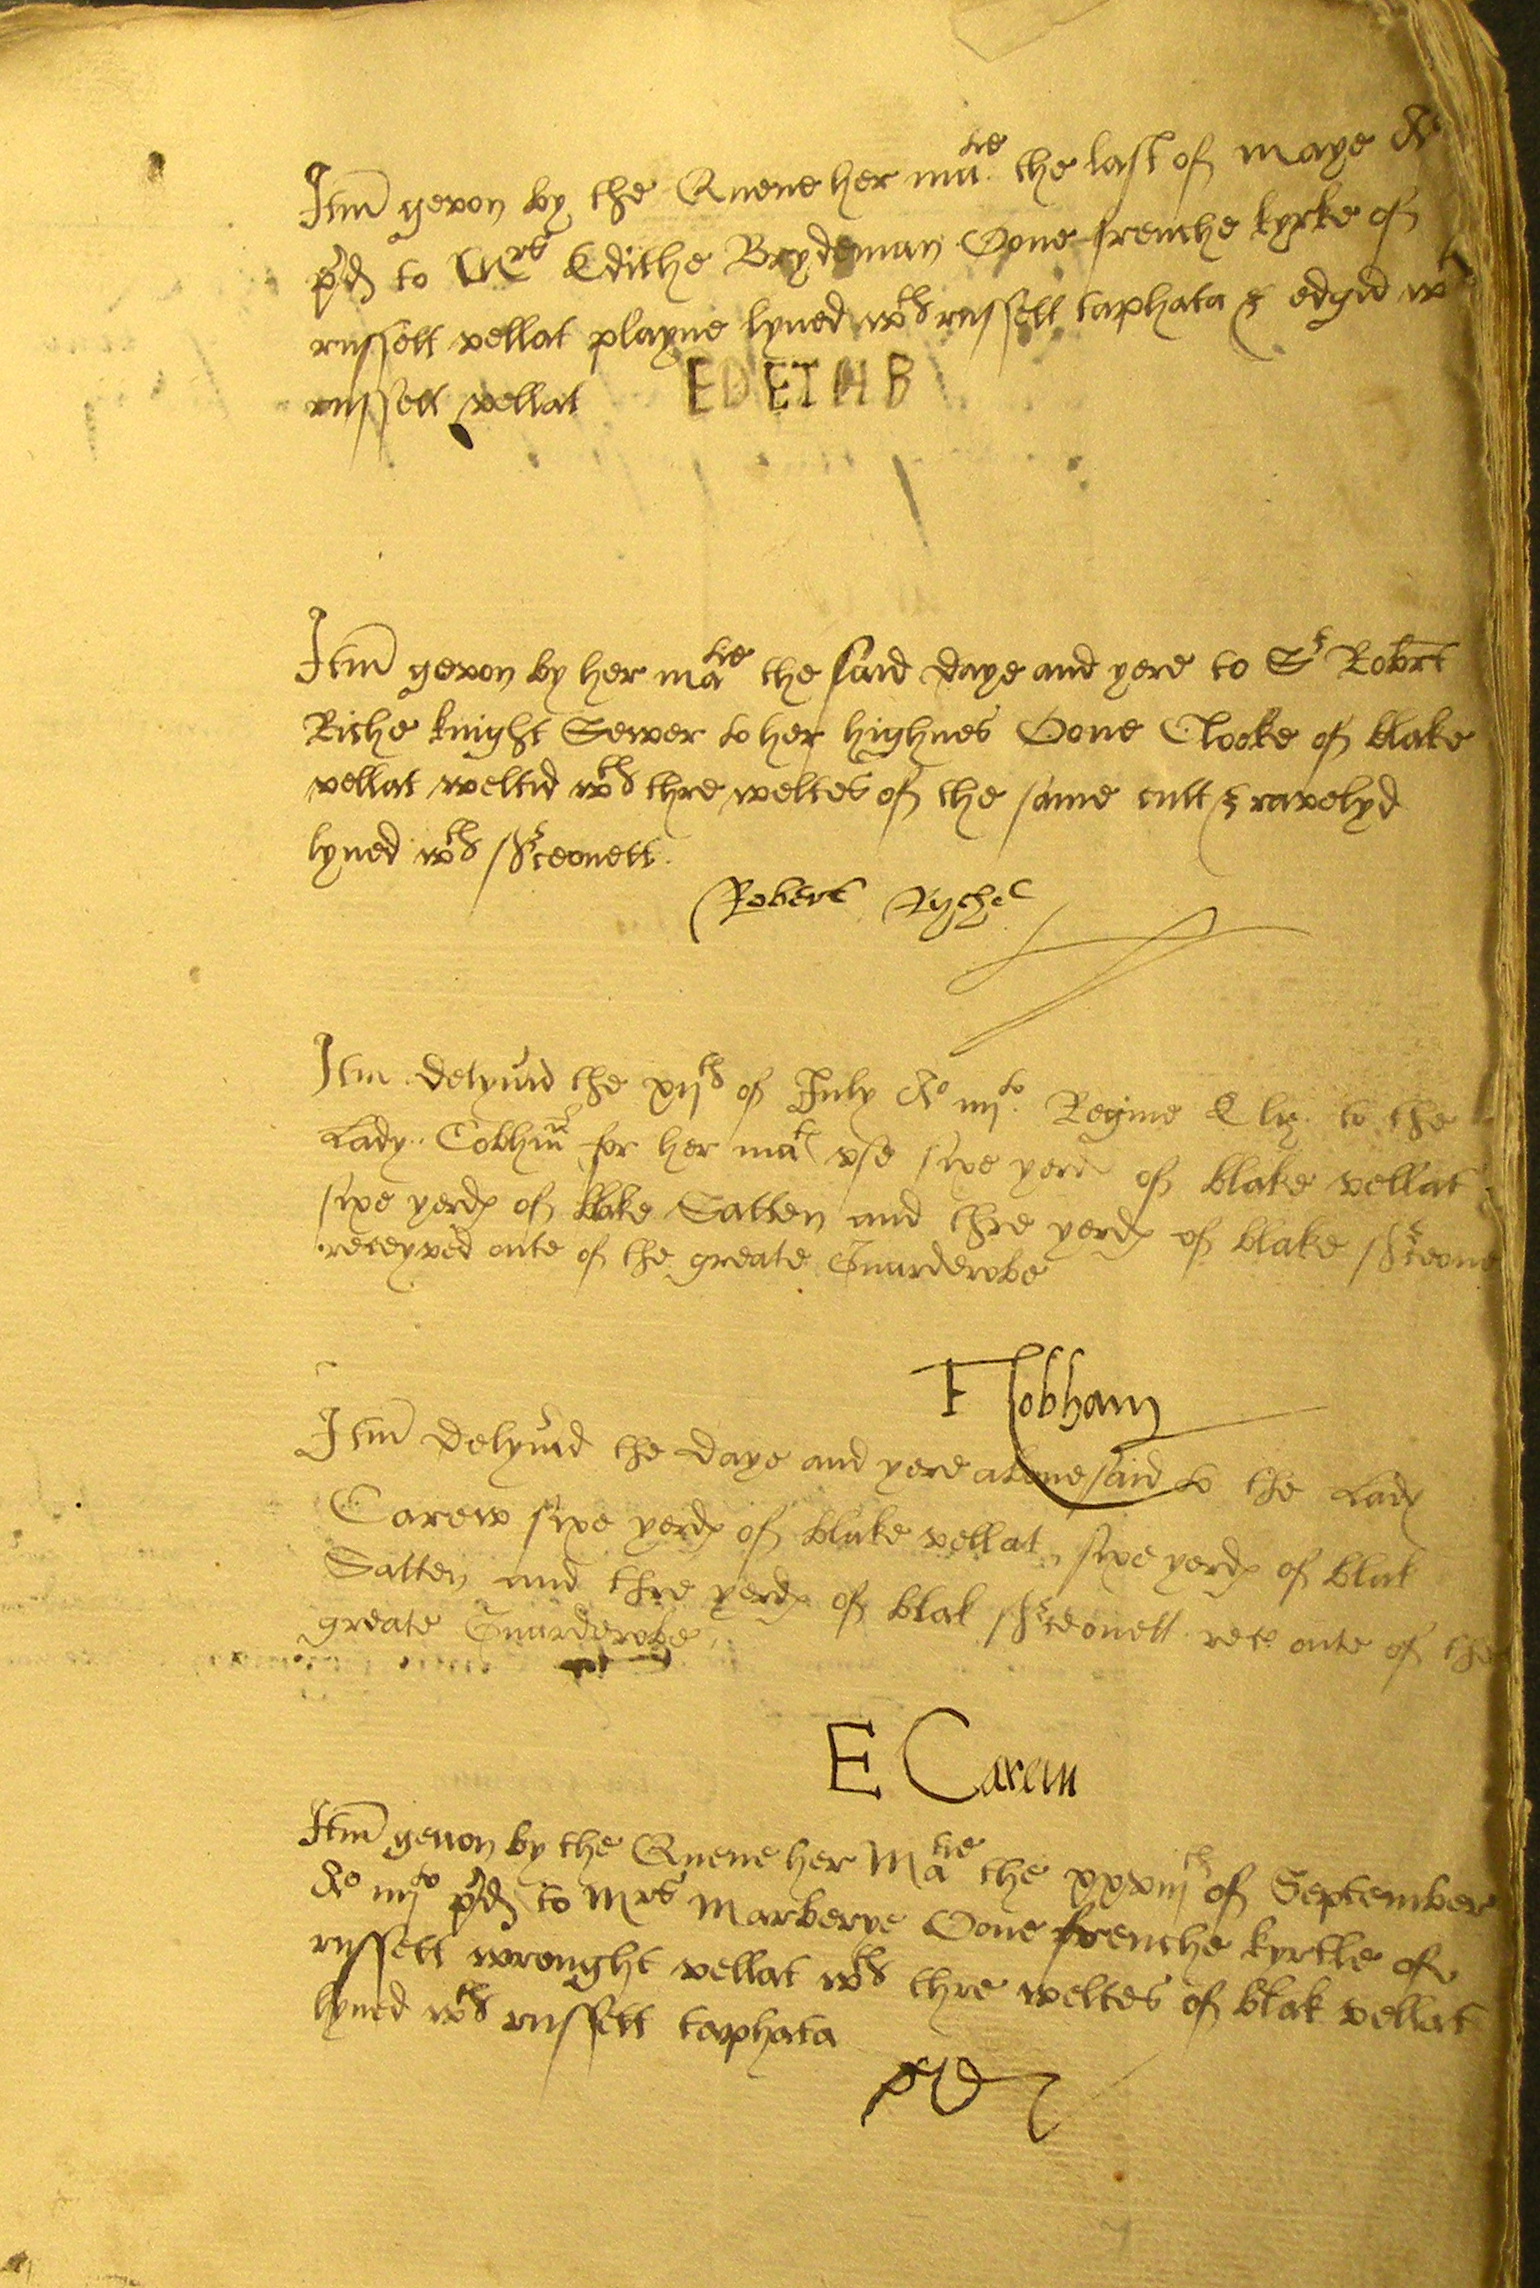 Itm geven by the Quene her ma.tie the last of maye Ao
pd to Mrs Edithe Brydeman Oone frenche kyrke of
russett vellat playne lyned wth russett taphata & edgid wt
russett vellat
EDETH B
Itm geven by her matie the said daye and yere to Sr Robrt
Riche knight Sewer to her highnes Oone Clooke of blake
vellat weltid wth thre weltes of the same cutt & ravelyd
lyned wth sarceonett.
Robert Ryche
Itm delyuid the xijth of July Ao iiijto. Regine Eliz. to the
Lady Cobhm for her mat vse sixe yerds of blake vellat
sixe yerds of blake Satten and thre yerds of blake sarceone
receyved oute of the greate Guarderobe
F Cobham
Itm delyuid the daye and yere abouesaid to the Lady
Carew sixe yerds of blake vellat, sixe yerds of blak
Satten and thre yerds of blak sarceonett rece oute of the
greate Guarderobe
E Carew
Itm geuon by the Quene her Matie the xxviijth of September
Ao iiijto pd to Mrs Marberye Oone frenche kyrtle of
russett wrought vellat wth thre weltes of blak vellat
lyned wth russett taphata